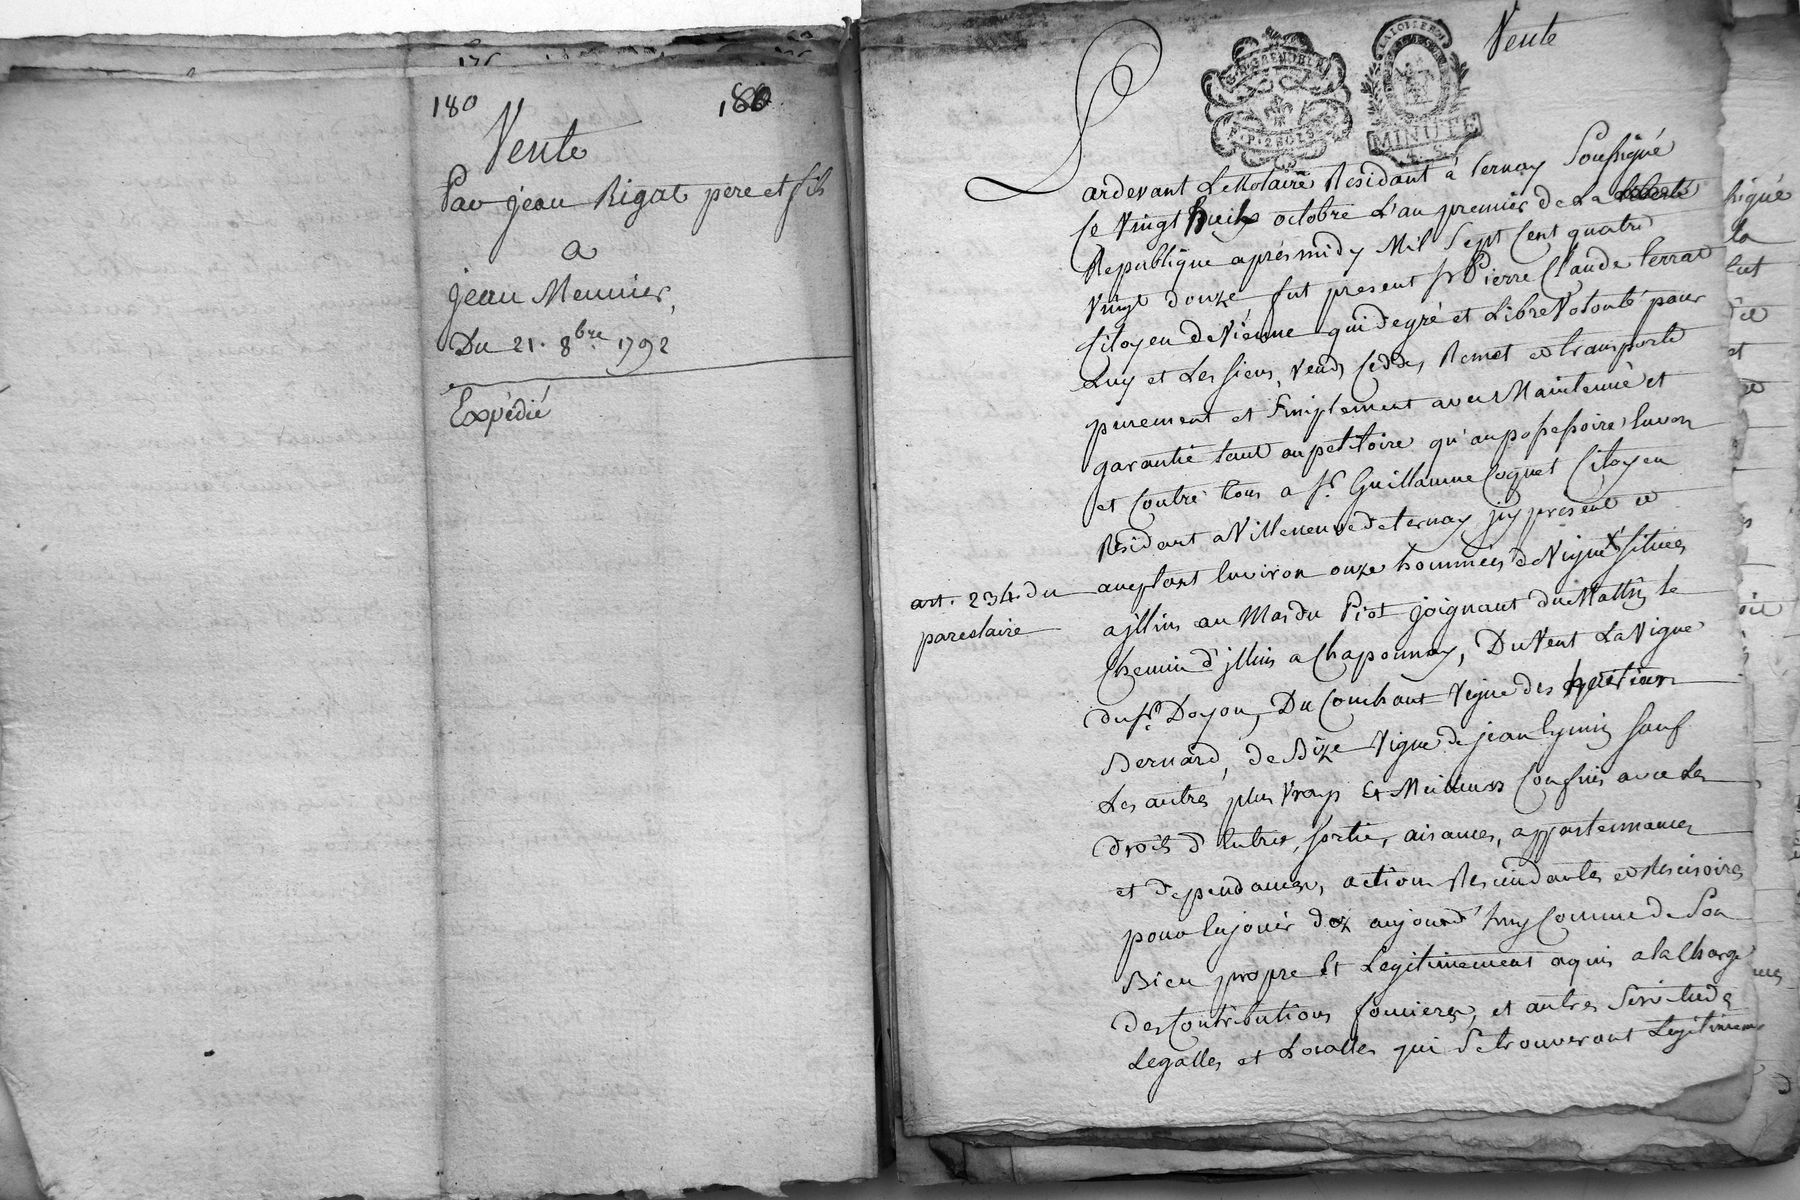 180
180
Vente
Par jean Rigat pere et fils
a
jean Meunier,
Du 21. 8bre 1792
Expédié
Vente
G.R. GRENOBLE
F.P. 2 SOLS
LA LOI ET LE ROI
MINUTE
4. S
Pardevant Le Notaire Residant à ternay Soussigné
Ce Vingt huit octobre L'an premier de La liberté
Republique aprés midy Mil Sept Cent quatre
Vingt douze fut present sr Pierre Claude terrat
Citoyen de Vienne qui de gré et Libre Volonté pour
Luy et Les siens, Vend, Cedde, Remet et transporte
purement et Simplement avec Maintenüe et
garantie tant au petitoire qu'au possessoire Envers
et Contre tous a sr. Guillaume Coquet Citoyen
Residant a Villeneuve de ternay jcy present et
aceptant Environ onze hommées de Vigne situées
art. 234. du
parcelaire
a jllins au Mas du Piot joignant du Mattin le
Chemin d'jllins a Chaponnay, Du Vent La Vigne
du sr. Doyon, Du Couchant Vigne des heritiers
Bernard, de Bize Vigne de jean Eymin sauf
Les autres plus Vrays Et Meilleurs Confins avec Les
droits d'Entrée, sortie, aisances, appartennances
et dependances, action Rescindantes et Rescisoires
pour En jouir dez aujourd'huy Comme de Son
Bien propre Et Legitimement aquis a la Charge
des Contributions foncieres, et autres Servitudes
Legalles et Localles qui Se trouveront Legitimem